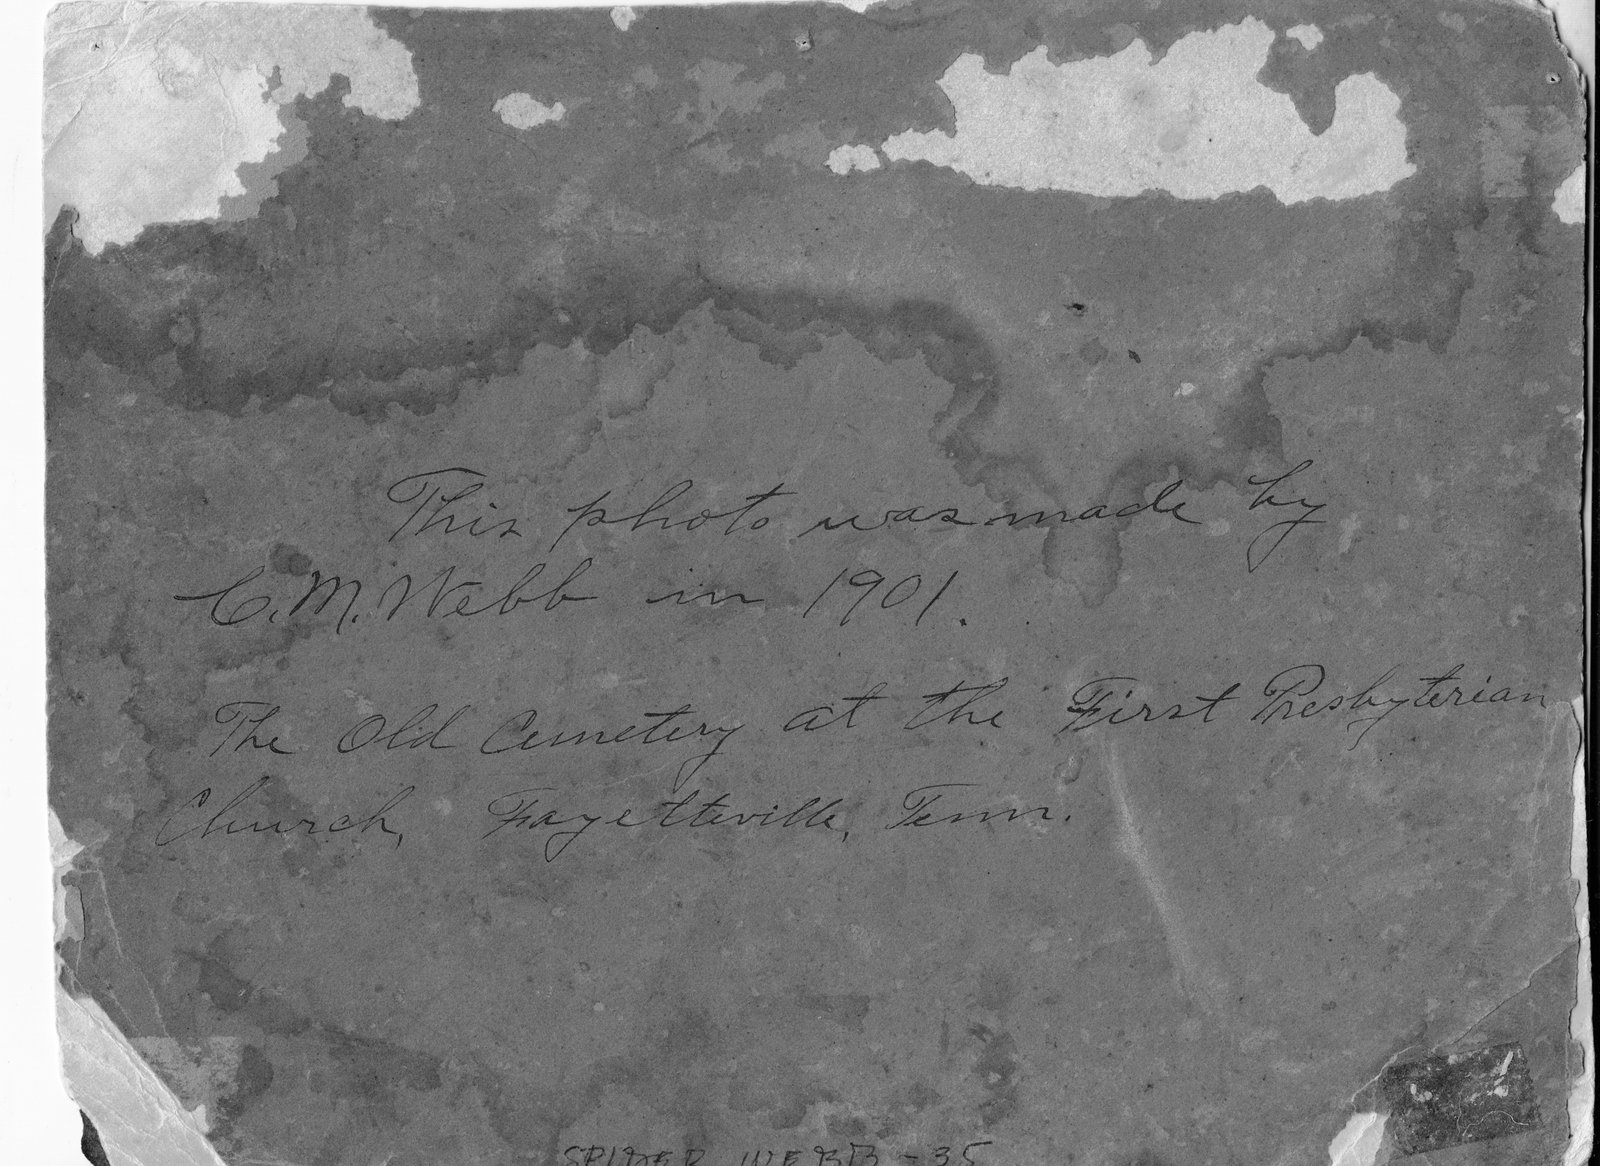 This photo was made by
C. M. Webb in 1901.
The Old Cemetery at the First Presbyterian
Church, Fayetteville, Tenn.
SPIDER WEBB - 35